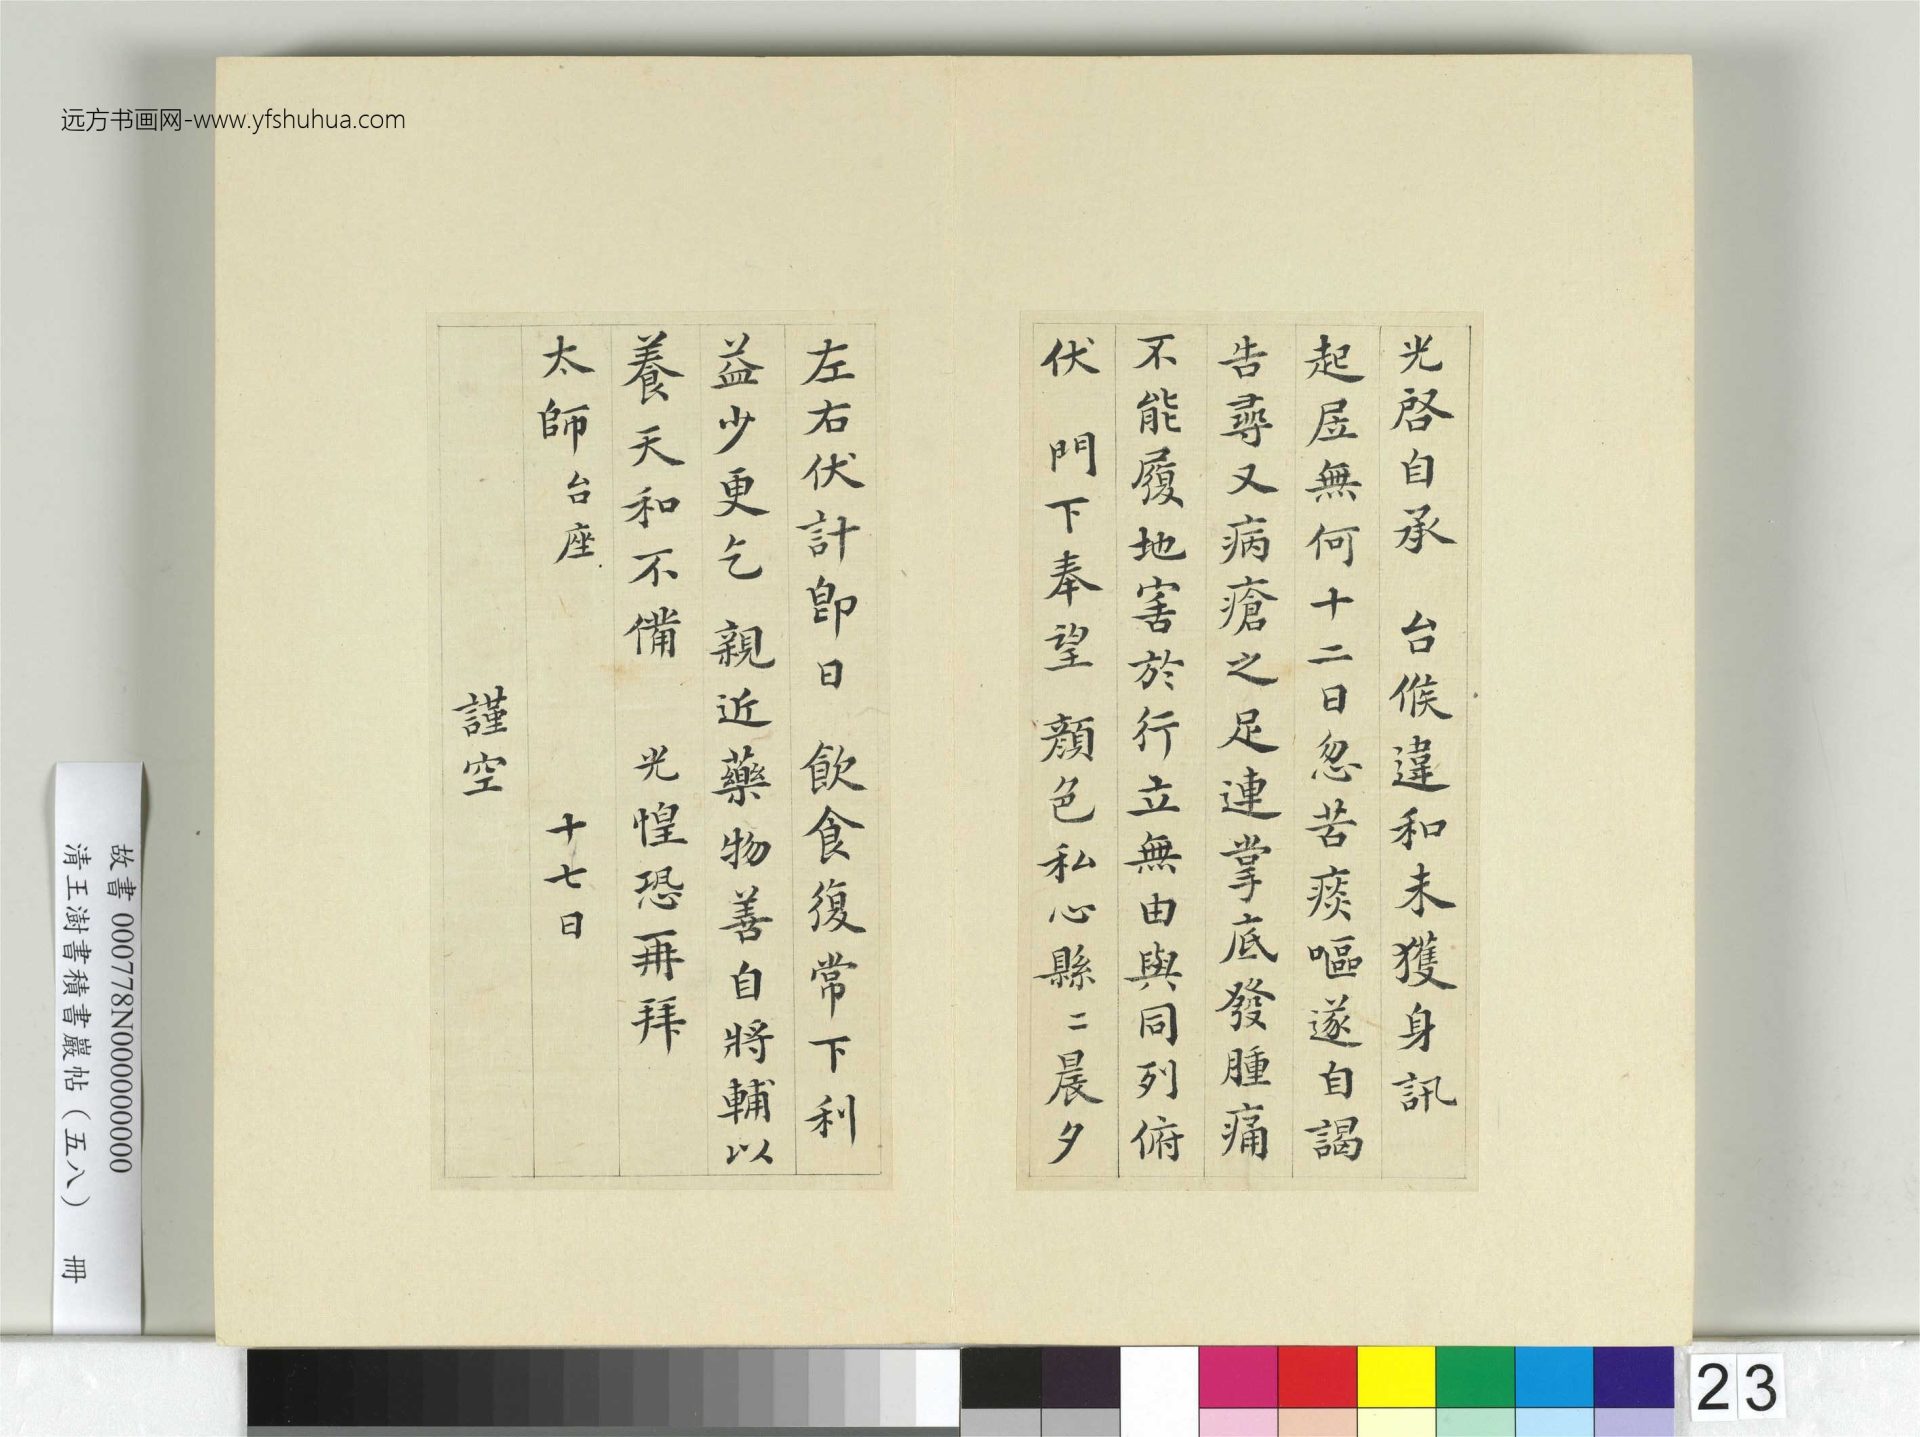 远方书画网-www.yfshuhua.com
光啓自承 台候違和未獲身訊
起居無何十二日忽苦痰嘔遂自謁
告尋又病瘡之足連掌底發腫痛
不能履地害於行立無由與同列俯
伏 門下奉望 顏色私心縣〻晨夕
左右伏計即日 飲食復常下利
益少更乞 親近藥物善自將輔以
養天和不備 光惶恐再拜
太師台座 十七日
謹空
故書 000778N000000000
清王澍書積書巖帖（五八） 冊
23